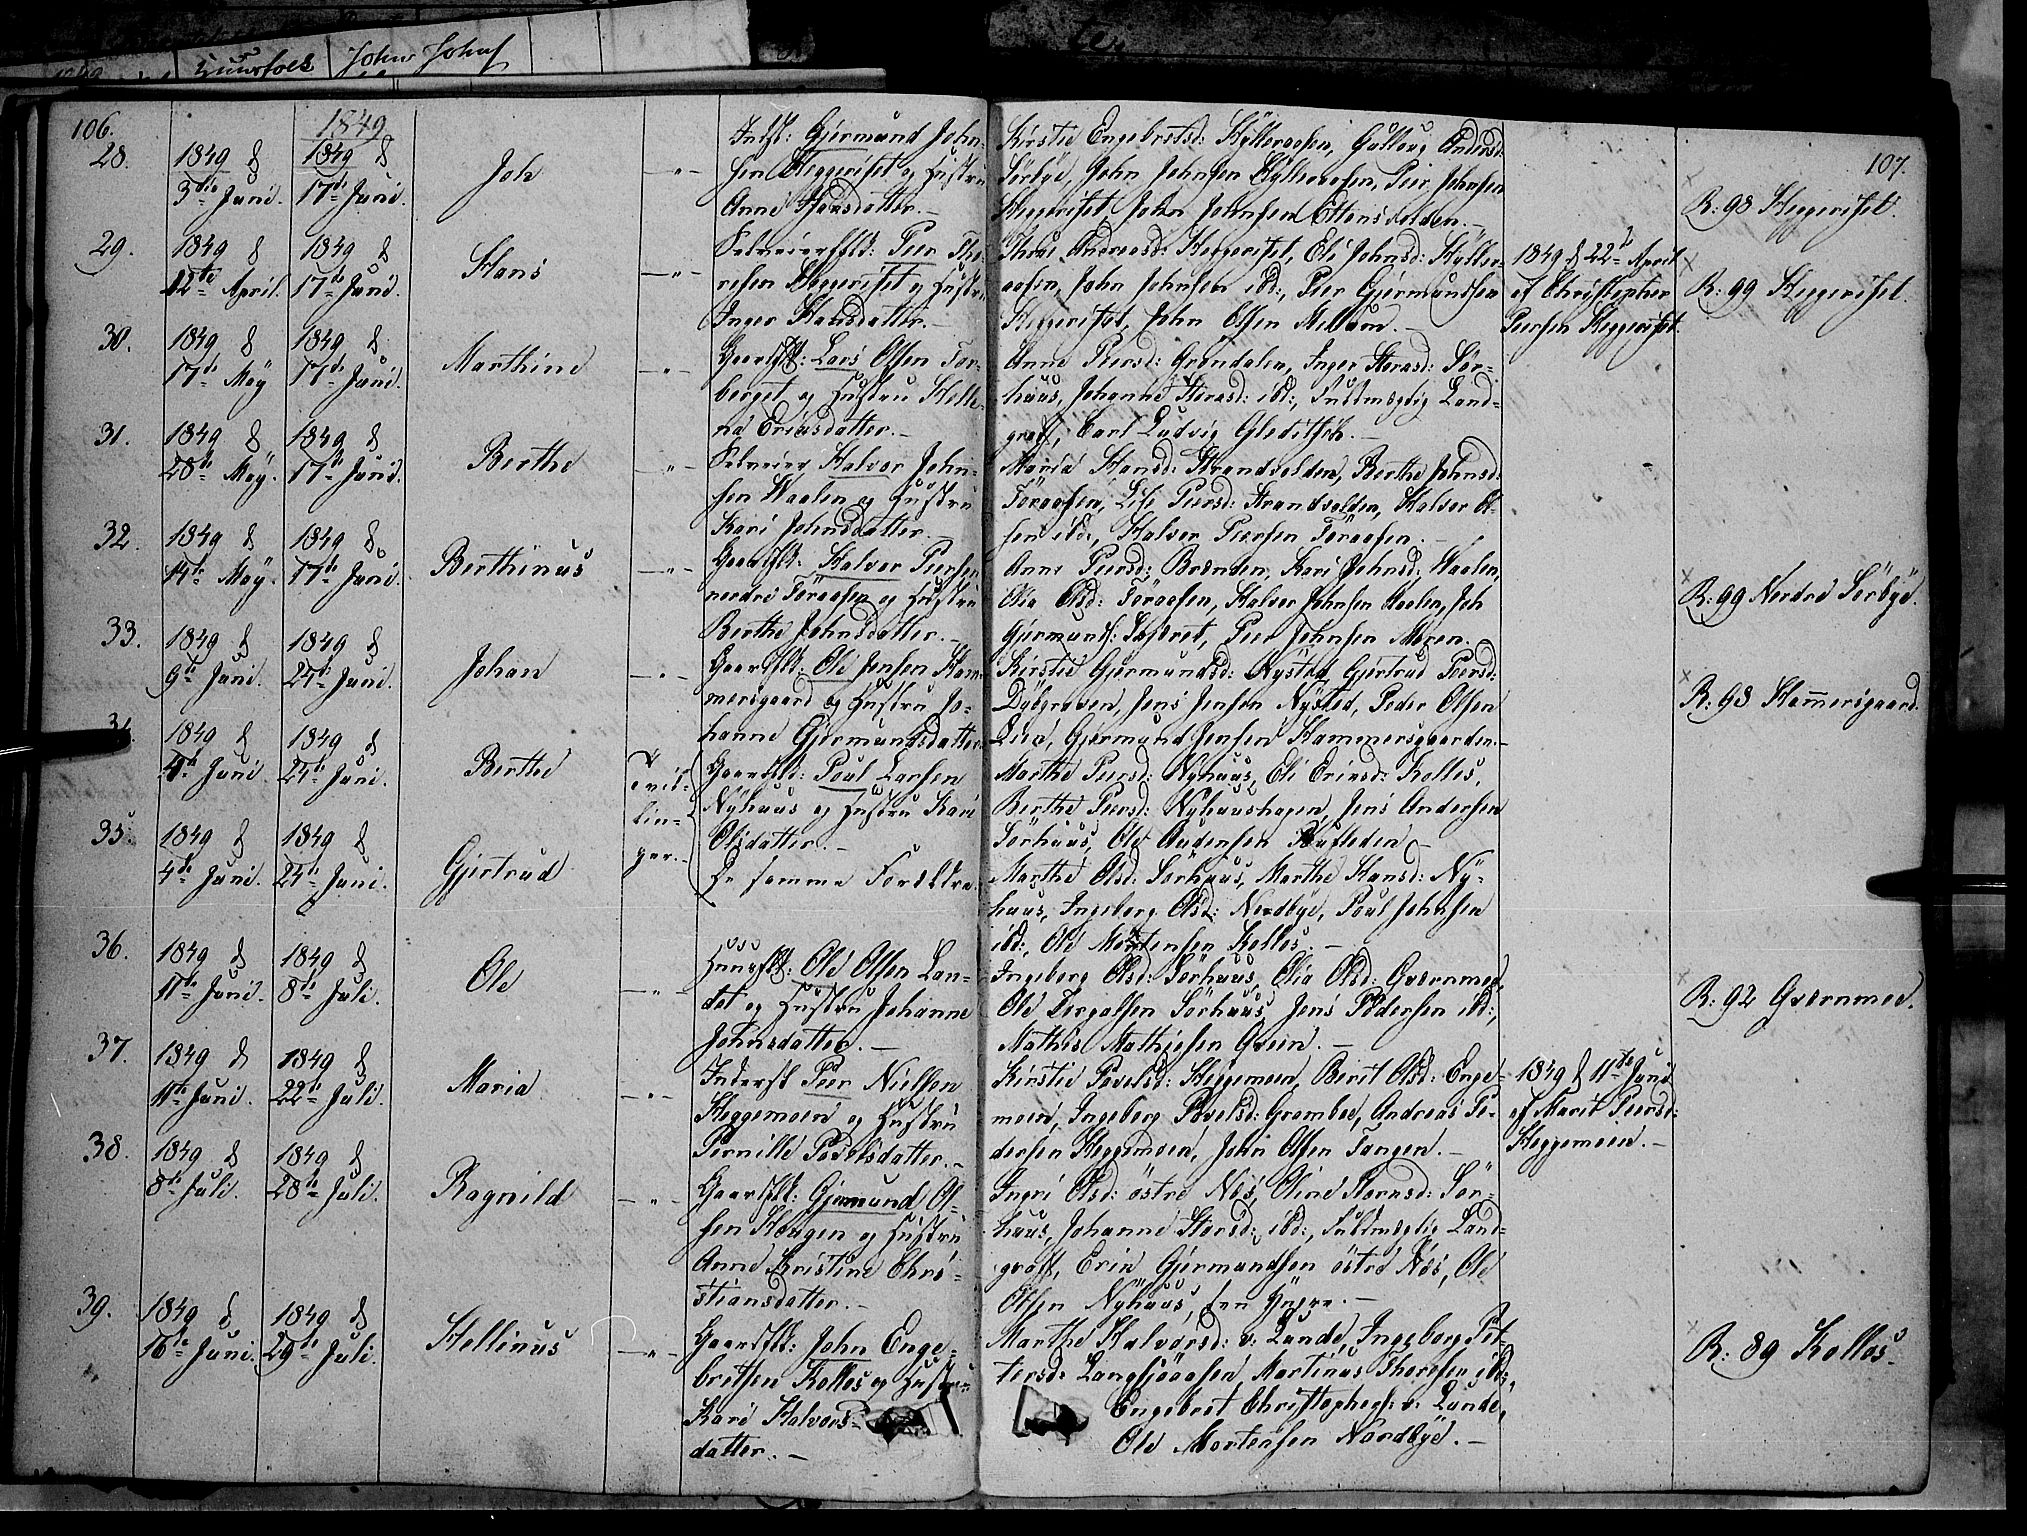 Huusfolk John Johns
106.
1849
28. 1849 d 1849 d
3die Juni. 17de Juni.
Joh
Indst: Gjermund John-
sen Heggeriset og Hustru
Anne Hansdatter.
Kirstie Engebretsd: Hylleraasen, Gulloug Andersd:
Sörbye, John Johnsen Hylleraasen, Peer Johnsen
Heggeriset, John Johnsen
107.
R: 98 Heggeriset.
29. 1849 d 1849 d
12te April. 17de Juni.
Hans
Selveierfolk: Peer Tho-
resen Heggeriset og Hustru
Inger Hansdatter.
Andreasd: Heggeriset, Eli Johnsd: Hyller-
aasen, John Johnsen ibd:, Peer Gjermundsen
Heggeriset, John Olsen Mellum.
1849 d 22de April
af Christopher
Peersen Heggeriset.
R: 99 Heggeriset.
30. 1849 d 1849 d
17de May 17de Juni.
Marthine
Gaardfk: Lars Olsen For-
berget og Hustru Helle-
na Ericsdatter.
Anne Peersd: Gröndalen, Inger Storsd: Sör-
huus, Johanne Storsd: ibd:, Fuldmægtig Land-
graff, Carl Ludvig Gleditsch.
31. 1849 d 1849 d
28de May. 17de Juni.
Berthe
Selveier Halvor John-
sen Waalen og Hustru
Kari Johnsdatter.
Maria Hansd: Strandvolden, Berthe Johnsd:
Föraasen, Lisi Peersd: Strandvolden, Halvor Ol-
sen ibd:, Halvor Peersen Föraasen.
32. 1849 d 1849 d
14de May. 17de Juni.
Berthinus
Gaardfk: Halvor Peersen
nordre Föraasen og Hustru
Berthe Johnsdatter.
Anne Peersd: Brænden, Kari Johnsd: Waalen,
Olia Olsd: Föraasen, Halvor Johnsen Waalen, Joh
Gjermunds: Peer Johnsen Moren.
R: 99 Nordre Sörbye.
33. 1849 d 1849 d
9de Juni. 24de Juni.
Johan
Gaardfk: Ole Jensen Ham-
mersgaard og Hustru Jo-
hanne Gjermundsdatter
Kirstie Gjermundsd: Nysted, Gjertrud Peersd:
Dybgraven, Jens Jensen Nysted, Peder Olsen
Lein, Gjermund Jensen Hammersgaarden.
R: 98 Hammersgaard.
34 1849 d 1849 d
4de Juni. 24de Juni.
Berthe
Tvil-
lin-
ger.
Gaardfk: Poul Larsen
Nyhuus og Hustru Kari
Olsdatter.
Marthe Peersd: Nyhuus, Eli Ericsd: Kolles,
Berthe Peersd: Nyhuushagen, Jens Andersen
Sörhuus, Ole Andersen
35. 1849 d 1849 d
4de Juni. 24de Juni.
Gjertrud
De samme Forældre.
Marthe Olsd: Sörhuus, Marthe Hansd: Ny-
huus, Ingeborg Olsd: Nordbye, Poul Johnsen
ibd:, Ole Mortensen Kolles.
36. 1849 d 1849 d
11te Juni. 8de Juli.
Ole
Huusfk: Ole Olsen Lan-
det og Hustru Johanne
Johnsdatter.
Ingeborg Olsd: Sörhuus, Olia Olsd: Qværnmoe,
Ole Bergolsen Sörhuus, Jens Pedersen ibd:,
Mathis Mathiesen Qvien.
R: 92 Qværnmoe.
37. 1849 d 1849 d
11te Juni. 22de Juli.
Maria
Inderst Peer Nielsen
Heggemoen og Hustru
Pernille Povelsdatter.
Kirstie Povelsd: Heggemoen, Berit Olsd: Enge-
moen, Ingeborg Povelsd: Grambo, Andreas Pe-
dersen Heggemoen, John Olsen Tangen.
1849 d 11te Juni
af Marit Peersd:
Heggemoen.
38. 1849 d 1849 d
8de Juli. 28de Juli.
Ragnild
Gaardfk: Gjermund Ol-
sen Haugen og Hustru
Anne Kristine Chri-
stiansdatter.
Ingri Olsd: östre Næs, Oline Storsd: Sör-
huus, Johanne Storsd: ibd:, Fuldmægtig Land-
graff, Eric Gjermundsen östre Næs, Ole
Olsen Nyhuus, den Yngre.
39. 1849 d 1849 d
16de Juni. 29de Juli.
Hellinus
Gaardfk: John Enge-
bretsen Kolles og Hustru
Kari Halvors-
datter.
Marthe Halvorsd: v: Lunde, Ingeborg Pet-
tersd: Langsjöaasen, Martinus Thoresen ibd:,
Engebret Christophers: v: Lunde,
Ole Mortensen Nordbye.
R: 89 Kolles.